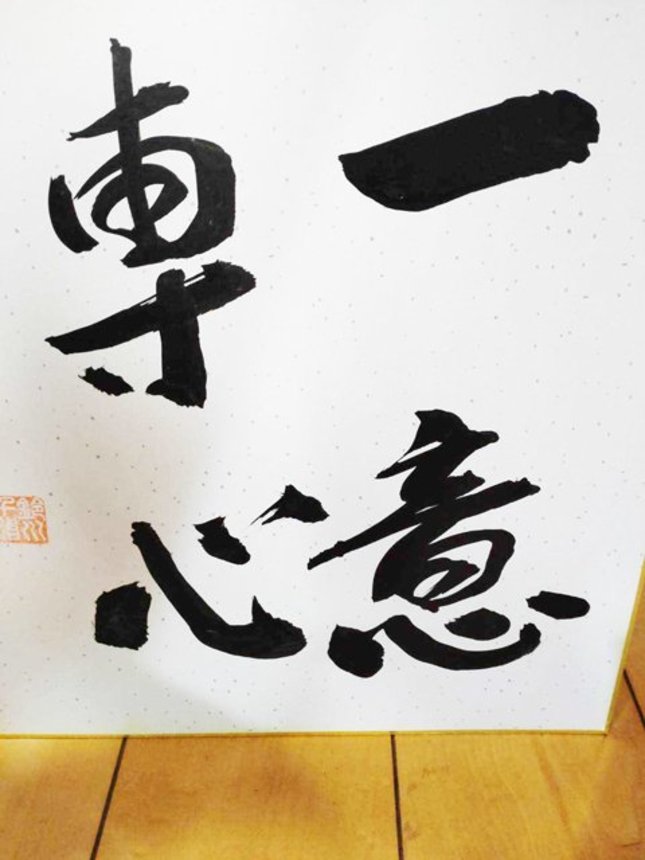 一意
専心